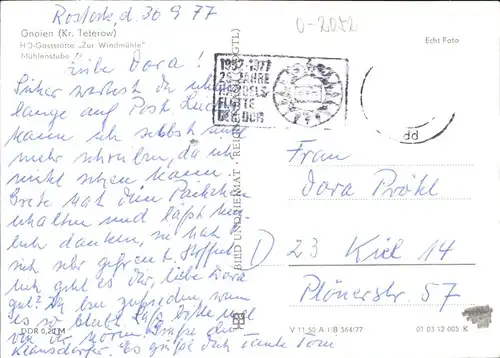 Rostock, d. 30 9 77
Gnoien (Kr. Teterow)
HO-Gaststätte „Zur Windmühle"
Mühlenstube
Echt Foto
0-2052
Liebe Dora!
Sicher wartest du schon
lange auf Post. Leider
kann ich selbst nicht
mehr schreiben, da ich
nicht sehen kann.
Grete hat dein Päckchen
erhalten und läßt herz-
lich danken, sie hat
sich sehr gefreut. Hoffent-
lich geht es dir, liebe Dora
gut? Ich bin zufrieden, wenn
es so bleibt.
von
Klausdorfer. Es grüßt dich Tante Toni
1952-1977
25 JAHRE
HANDELS
FLOTTE
DER DDR
BILD UND HEIMAT REICHENBACH (VOGTL)
Frau
Dora Pröhl
D 23 Kiel 14
Plönerstr. 57
DDR 0,20 M
V 11 50 A 1/B 564/77
01 03 12 005 K